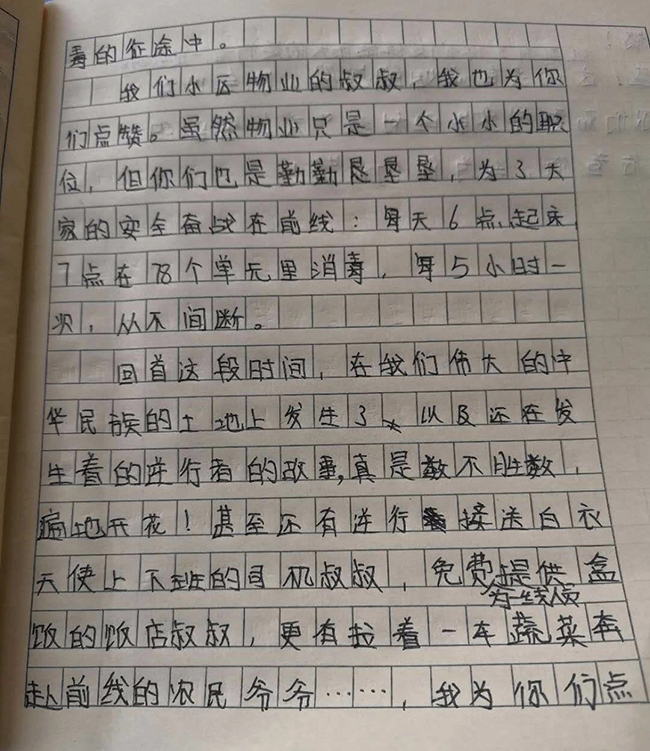 毒的征途中。
我们小区物业的叔叔，我也为你
们点赞。虽然物业只是一个小小的职
位，但你们也是勤勤恳恳垦，为了大
家的安全奋战在前线：每天6点起床，
7点在78个单元里消毒，每5小时一
次，从不间断。
回首这段时间，在我们伟大的中
华民族的土地上发生了、以及还在发
生着的逆行者的故事，真是数不胜数，
遍地开花！甚至还有逆行接送白衣
天使上下班的司机叔叔，免费提供盒
为一线人员
饭的饭店叔叔，更有拉着一车蔬菜奔
赴前线的农民爷爷……，我为你们点